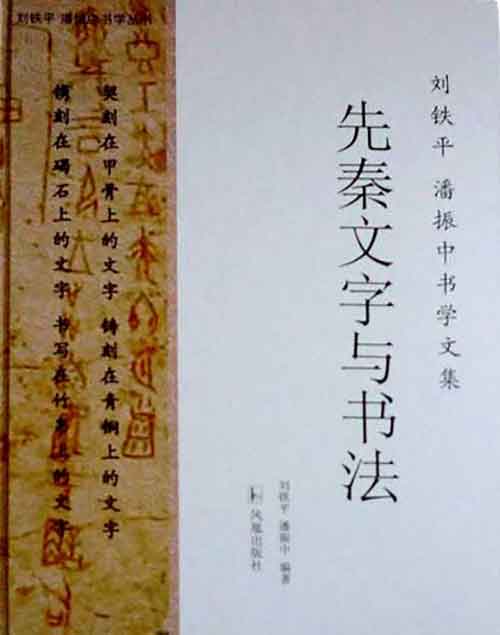 刘铁平 潘振中书学丛书
刘铁平 潘振中书学文集
先秦文字与书法
刘铁平 潘振中 编著
凤凰出版社
契刻在甲骨上的文字 铸刻在青铜上的文字
镌刻在碣石上的文字 书写在竹帛上的文字